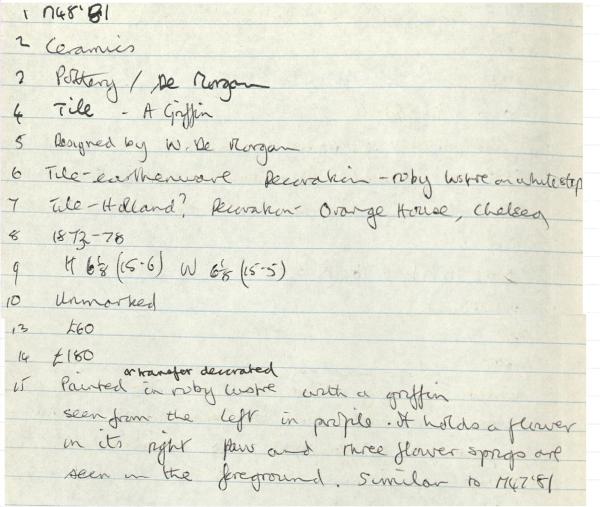 1 M48'81
2 Ceramics
3 Pottery / De Morgan
4 Tile - A Griffin
5 Designed by W. De Morgan
6 Tile - earthenware Decoration - ruby lustre on white slip
7 Tile - Holland? Decoration - Orange House, Chelsea
8 1873-78
9 H 6⅛ (15.6) W 6⅛ (15.5)
10 Unmarked
13 £60
14 £180
or transfer decorated
15 Painted in ruby lustre with a griffin
seen from the left in profile. It holds a flower
in its right paw and three flower sprigs are
seen in the foreground. Similar to M47'81